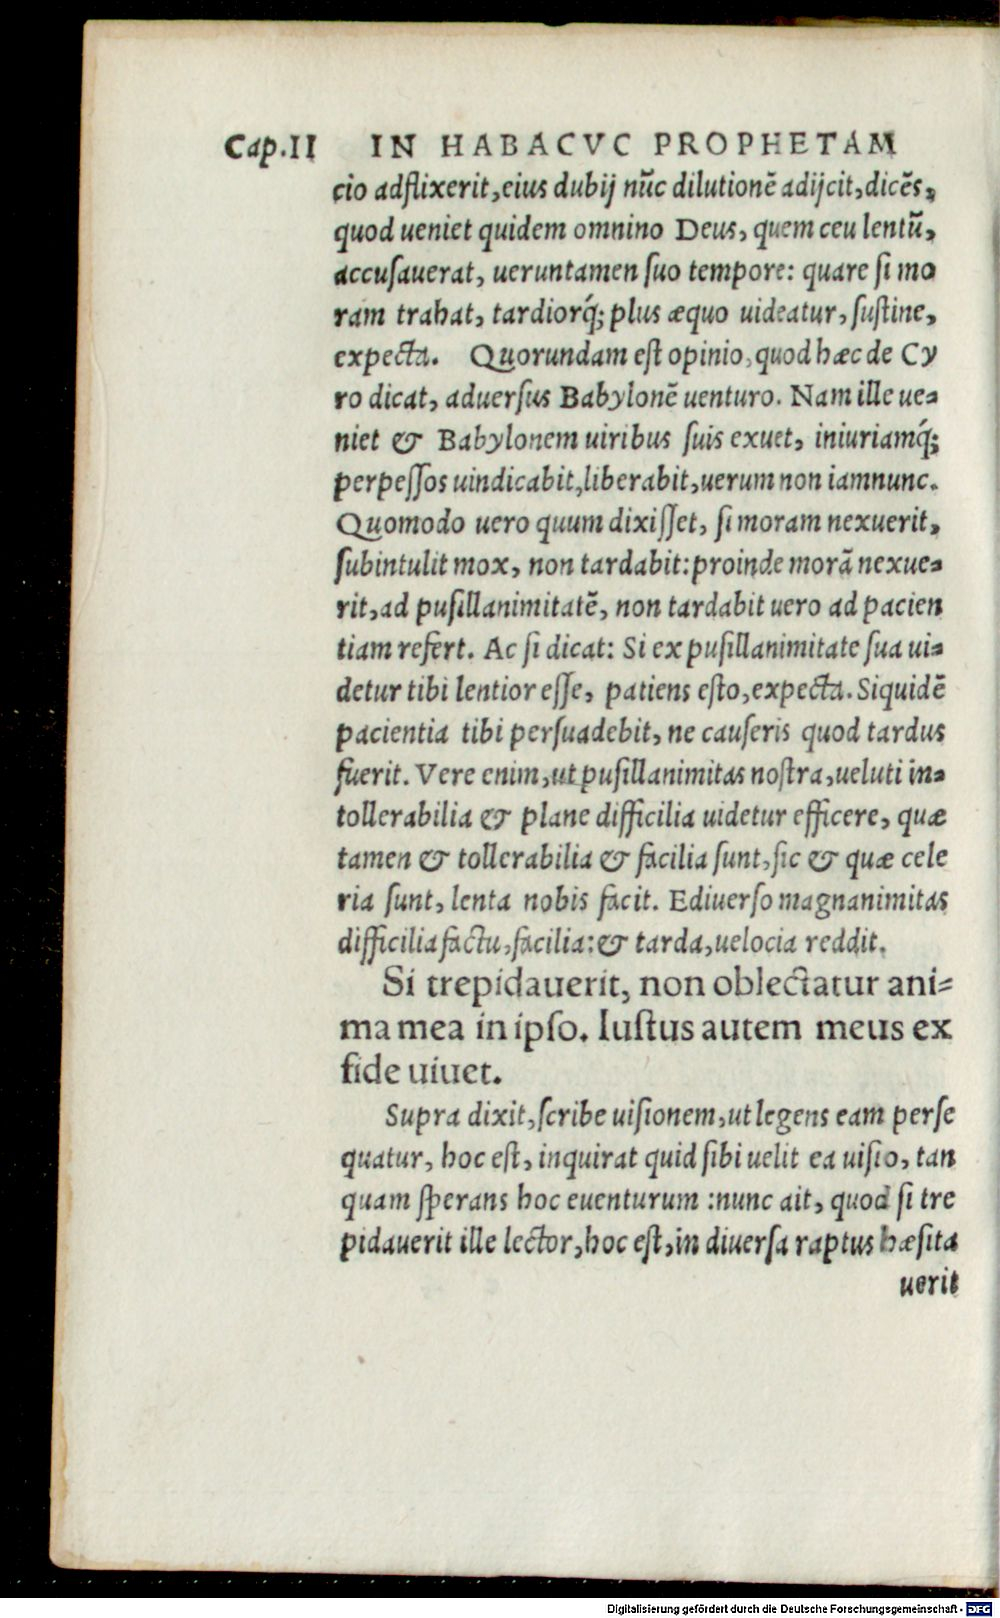 Cap.II IN HABACVC PROPHETAM
cio adflixerit, eius dubij nũc dilutionẽ adijcit, dicẽs,
quod ueniet quidem omnino Deus, quem ceu lentũ,
accusauerat, ueruntamen suo tempore: quare si mo
ram trahat, tardiorq́; plus æquo uideatur, sustine,
expecta. Quorundam est opinio, quod hæc de Cy
ro dicat, aduersus Babylonẽ uenturo. Nam ille ue-
niet & Babylonem uiribus suis exuet, iniuriamq́;
perpessos uindicabit, liberabit, uerum non iamnunc.
Quomodo uero quum dixisset, si moram nexuerit,
subintulit mox, non tardabit: proinde morã nexue-
rit, ad pusillanimitatẽ, non tardabit uero ad pacien
tiam refert. Ac si dicat: Si ex pusillanimitate sua ui-
detur tibi lentior esse, patiens esto, expecta. Siquidẽ
pacientia tibi persuadebit, ne causeris quod tardus
fuerit. Vere enim, ut pusillanimitas nostra, ueluti in-
tollerabilia & plane difficilia uidetur efficere, quæ
tamen & tollerabilia & facilia sunt, sic & quæ cele
ria sunt, lenta nobis facit. Ediuerso magnanimitas
difficilia factu, facilia: & tarda, uelocia reddit.
Si trepidauerit, non oblectatur ani-
ma mea in ipso. Iustus autem meus ex
fide uiuet.
Supra dixit, scribe uisionem, ut legens eam perse
quatur, hoc est, inquirat quid sibi uelit ea uisio, tan
quam sperans hoc euenturum : nunc ait, quod si tre
pidauerit ille lector, hoc est, in diuersa raptus hæsita
uerit
Digitalisierung gefördert durch die Deutsche Forschungsgemeinschaft - DFG